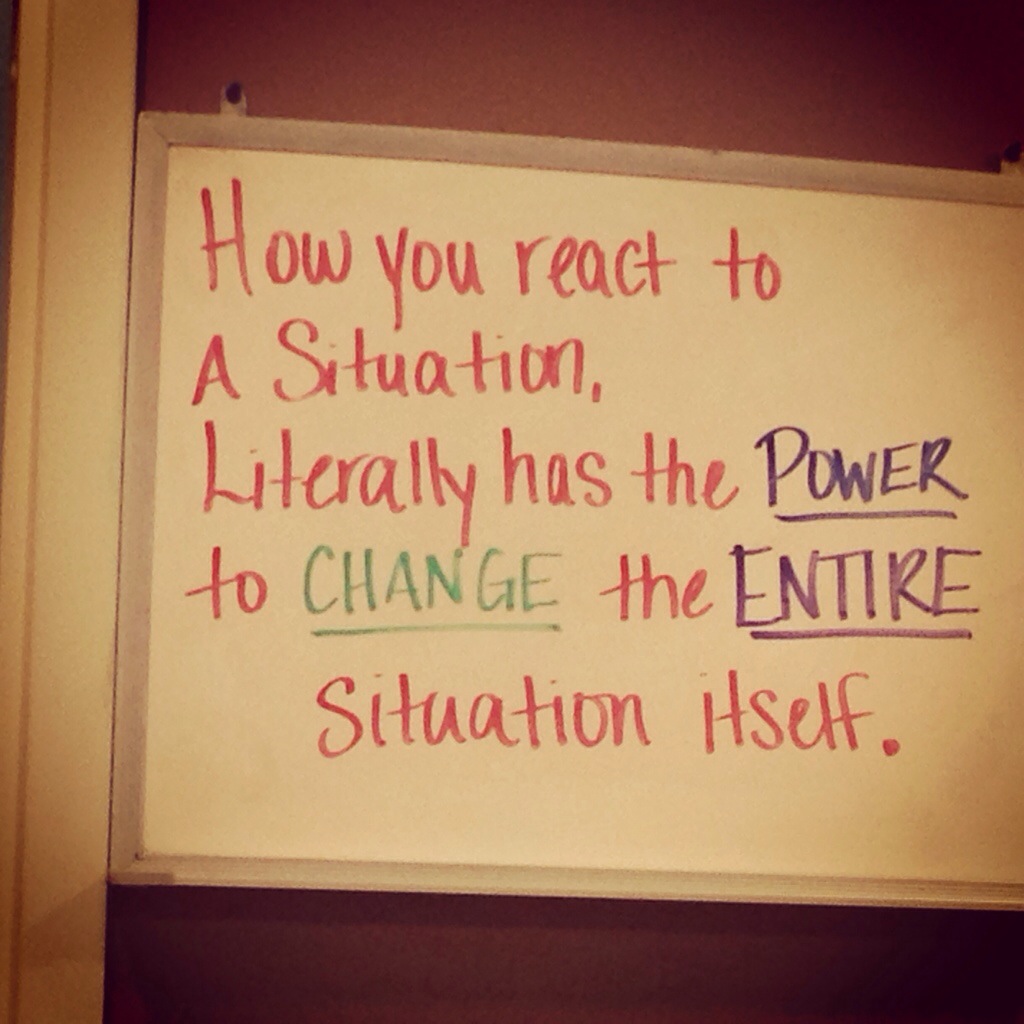 How you react to
A Situation,
Literally has the POWER
to CHANGE the ENTIRE
Situation itself.